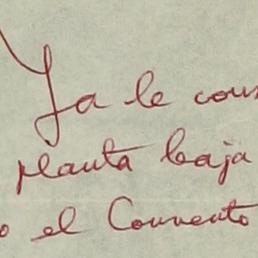 Ya le cons
planta baja
o el Convento